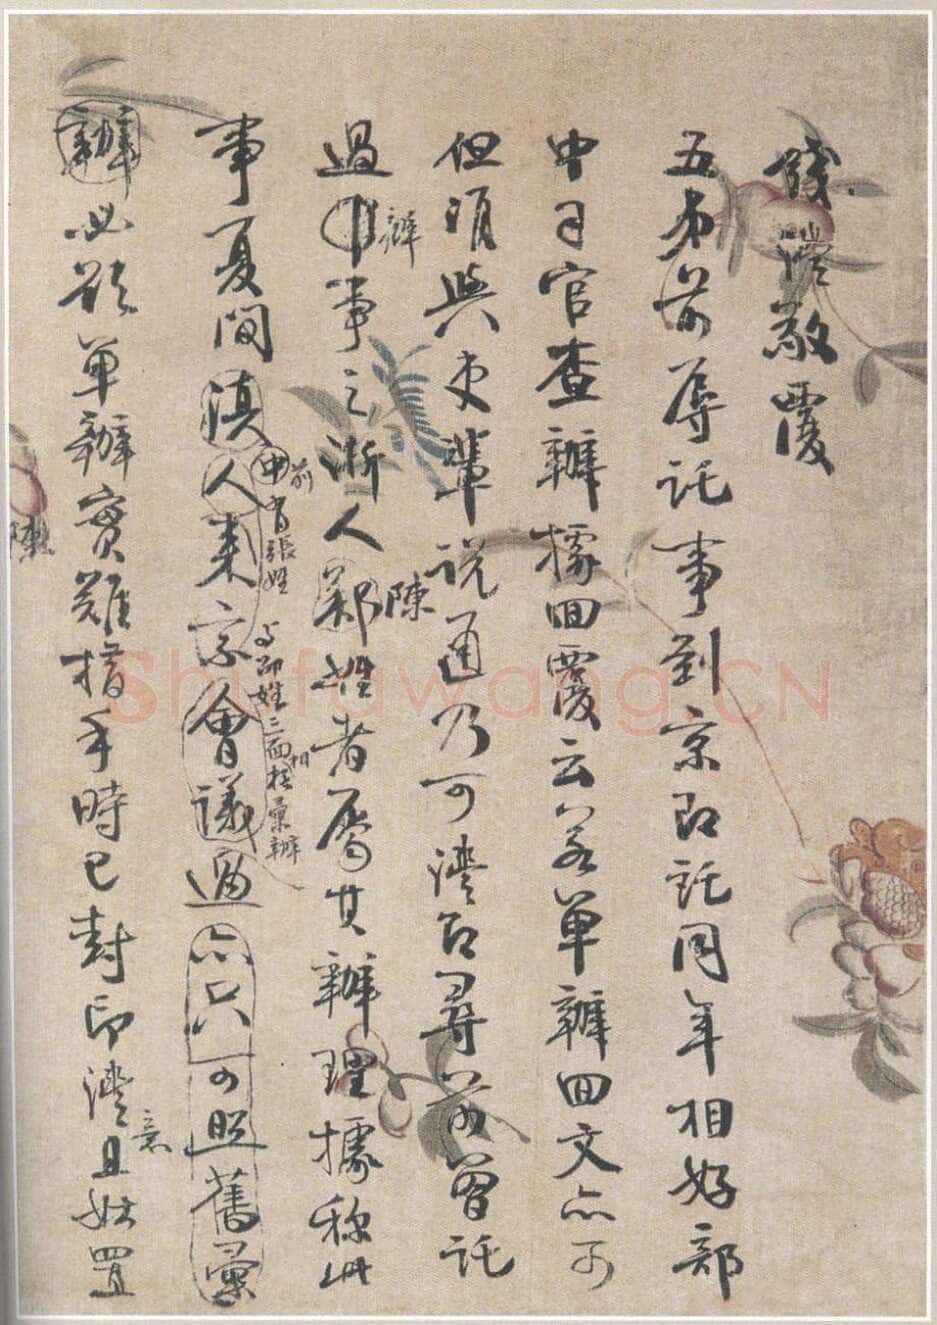 錢灃敬覆
五弟前辱託事到京即託同年相好部
中司官查辦據回覆云若單辦回文亦可
但須與吏輩説通乃可灃即尋前曾託
過辦事之浙人鄭陳姓者屬其辦理據称此
事夏間滇人来京會議過亦只可照舊彙
前
張姓
邵姓三面相
彙辦
辦必欲單辦實難措手時已封印灃意且姑置
陳
Shufawang.CN